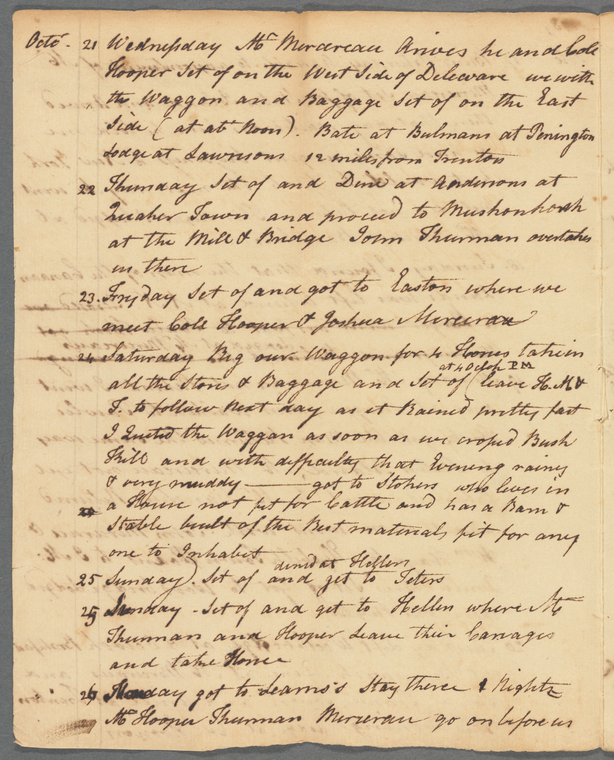 Octor. 21 Wednesday Mr Mercereau Arives he and Cole
Hooper Set of on the West Side of Deleware we with
the Waggon and Baggage Set of on the East
Side (at abt Noon). Bate at Bulmans at Penington
Lodge at Lawresons 12 miles from Trenton
22 Thursday Set of and Dine at Andersons at
Quaker Town and proceed to Mushonkonk
at the Mill & Bridge John Thurman overtakes
us there
23. Fryday Set of and got to Easton where we
meet Cole Hooper & Joshua Mercereau
24 Saturday Rig our Waggon for 4 Horses take in
all the Stores & Baggage and Set of (leave H. M &
at 4 OClok PM
T. to follow next day as it Rained pretty fast
I Quited the Waggan as soon as we crosed Bush
Kill and with difficulty that Evening rainy
& very muddy — got to Stohers who lives in
a House not fit for Cattle and has a Barn &
Stable built of the Best materials fit for any
one to Inhabet
dined at Hellers
25 Sunday. Set of and get to Teters
25 Sunday - Set of and get to Heller where Mr
Thurman and Hooper Leave their Carvages
and take Horse
26 day got to Learns's Stay there Nights
Mr Hooper Thurman Mercereau go on before us